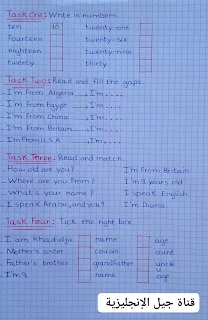 Task One: Write in numbers.
ten 10 twenty-one
fourteen twenty-six
eighteen twenty-nine
twenty thirty
Task Two: Read and fill the gaps
I'm from Algeria → I'm....
I'm from Egypt → I'm....
I'm from China → I'm....
I'm from Britain → I'm....
I'm from U.S.A → I'm....
Task Three: Read and match
How old are you? I'm from Britain
Where are you from? I'm 9 years old
What's your name? I speak English
I speak Arabic, and you? I'm Diana
Task Four: Tick the right box
I am Khadidja name age
Mother's sister cousin aunt
Father's brother grandfather uncle
I'm 9 name age
قناة جيل الإنجليزية